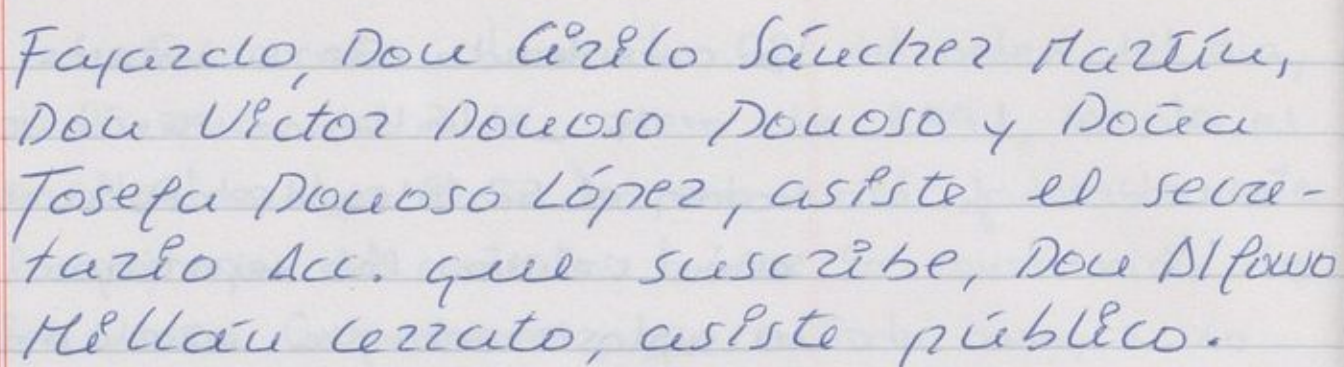 Fajardo, Don Cirilo Sánchez Martín,
Don Victor Donoso Donoso y Doña
Josefa Donoso López, asiste el secre-
tario Acc. que suscribe, Don Alfonso
Millán Cerrato, asiste público.